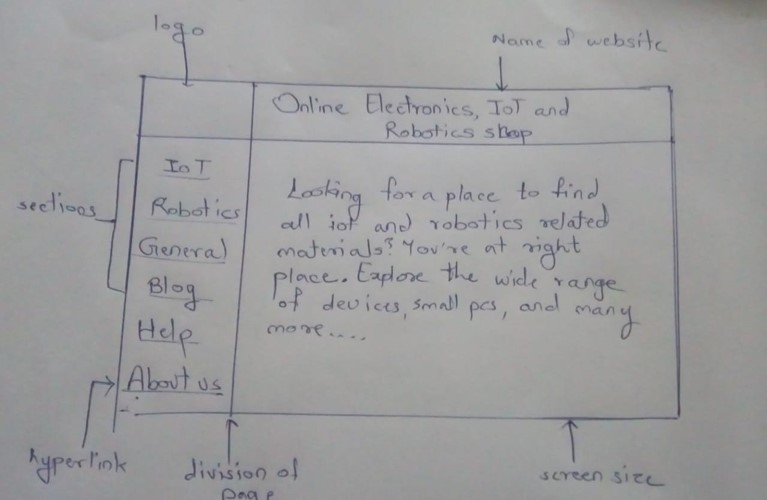 logo
Name of website
Online Electronics, IoT and
Robotics shop
sections
IoT
Robotics
General
Blog
Help
About us
Looking for a place to find
all iot and robotics related
materials? You're at right
place. Explore the wide range
of devices, small pcs, and many
more....
hyperlink
division of
page
screen size